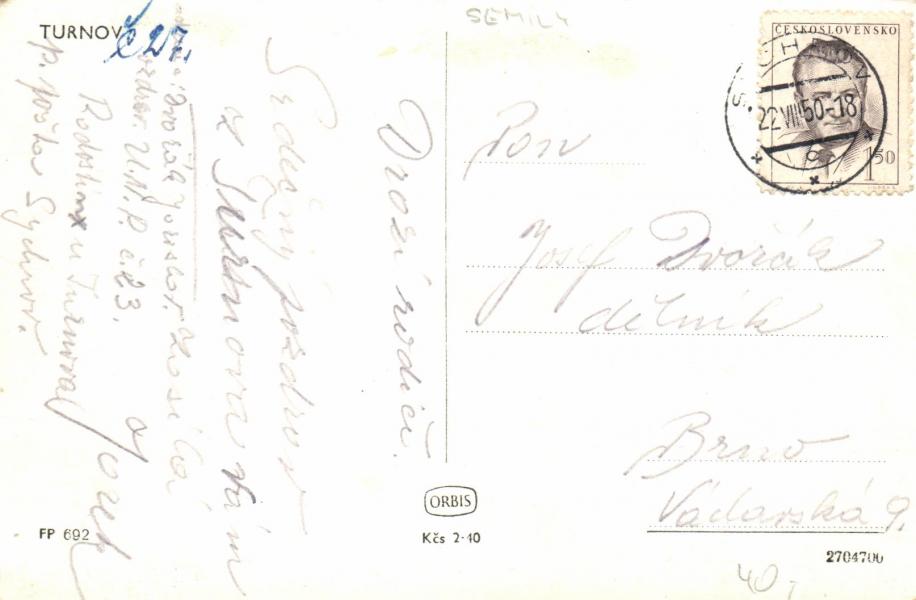 TURNOV
Č 27.
SEMILY
Drazí rodiče.
Srdečný pozdrav
z Turnova vám
zasílá
Jozek
Dvořák Jaroslav.
U.N.P. č 23.
u Turnova
p. pošta Sychrov.
Pan
Josef Dvořák
dělník
Brno
Václavská 9.
ČESKOSLOVENSKO
SYCHROV
22.VIII.50-18
1 50
ORBIS
Kčs 2·40
FP 692
2704700
40,-